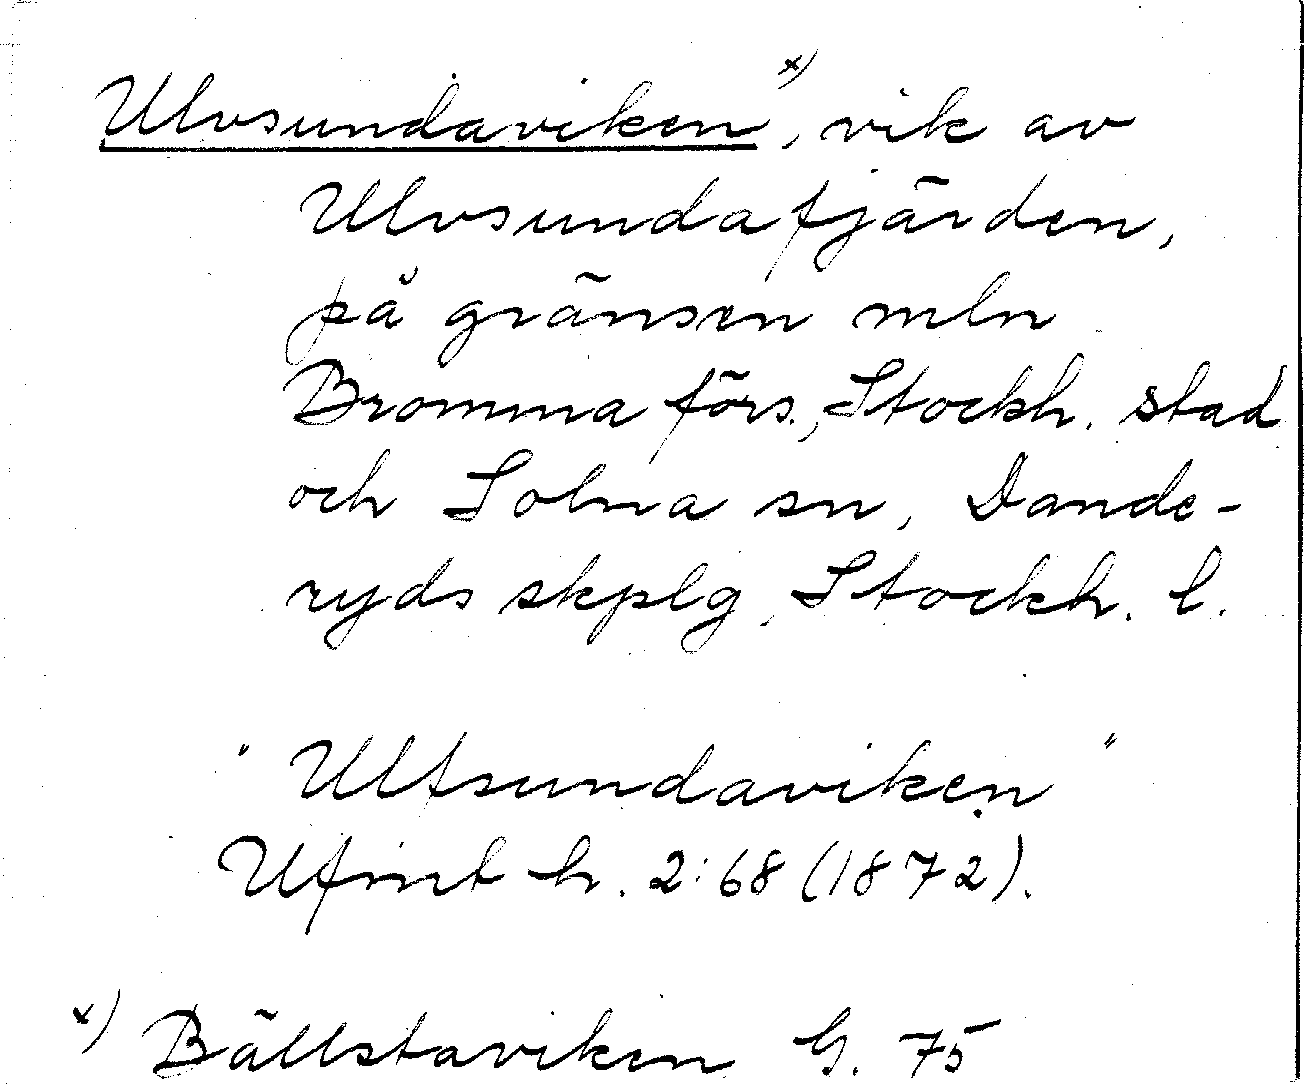 Ulvsundaviken x), vik av
Ulvsundafjärden,
på gränsen mln
Bromma förs., Stockh. stad
och Solna sn, Dande-
ryds skplg, Stockh. l.
"Ulfsundaviken"
Ufmt h. 2:68 (1872).
x) Bällstaviken G. 75